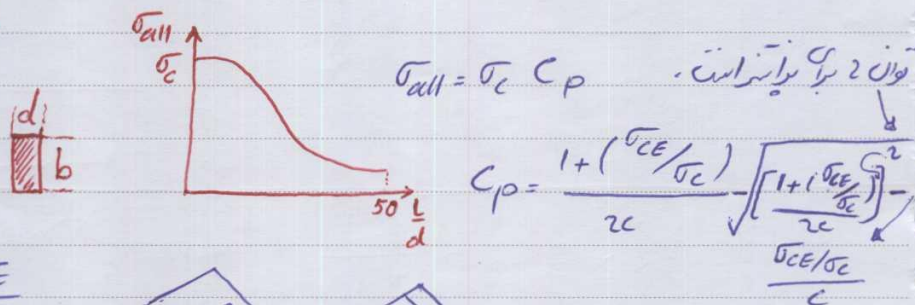 σall
σc
d
b
50 L/d
σall = σc Cp
توان 2 برای پرانتز است.
Cp = (1 + (σCE/σc)) / 2c - √([(1 + (σCE/σc)) / 2c]² - (σCE/σc) / c)
E